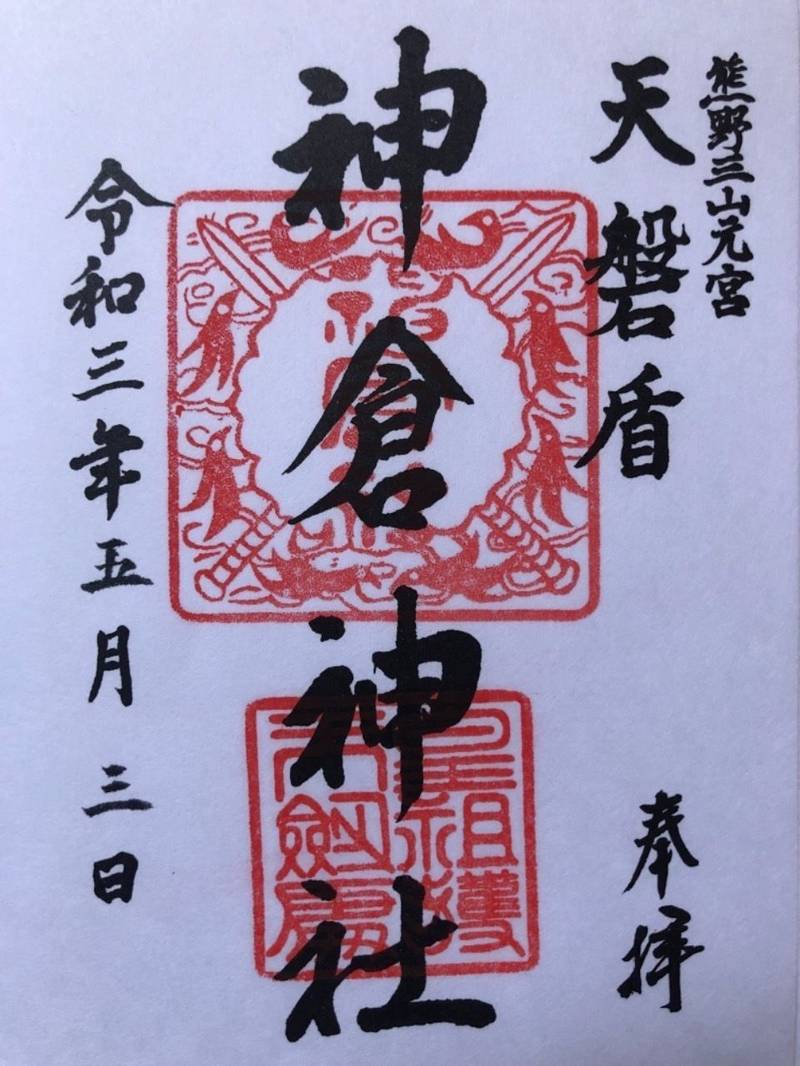 熊野三山元宮
天磐盾
奉拝
神倉神社
令和三年五月三日